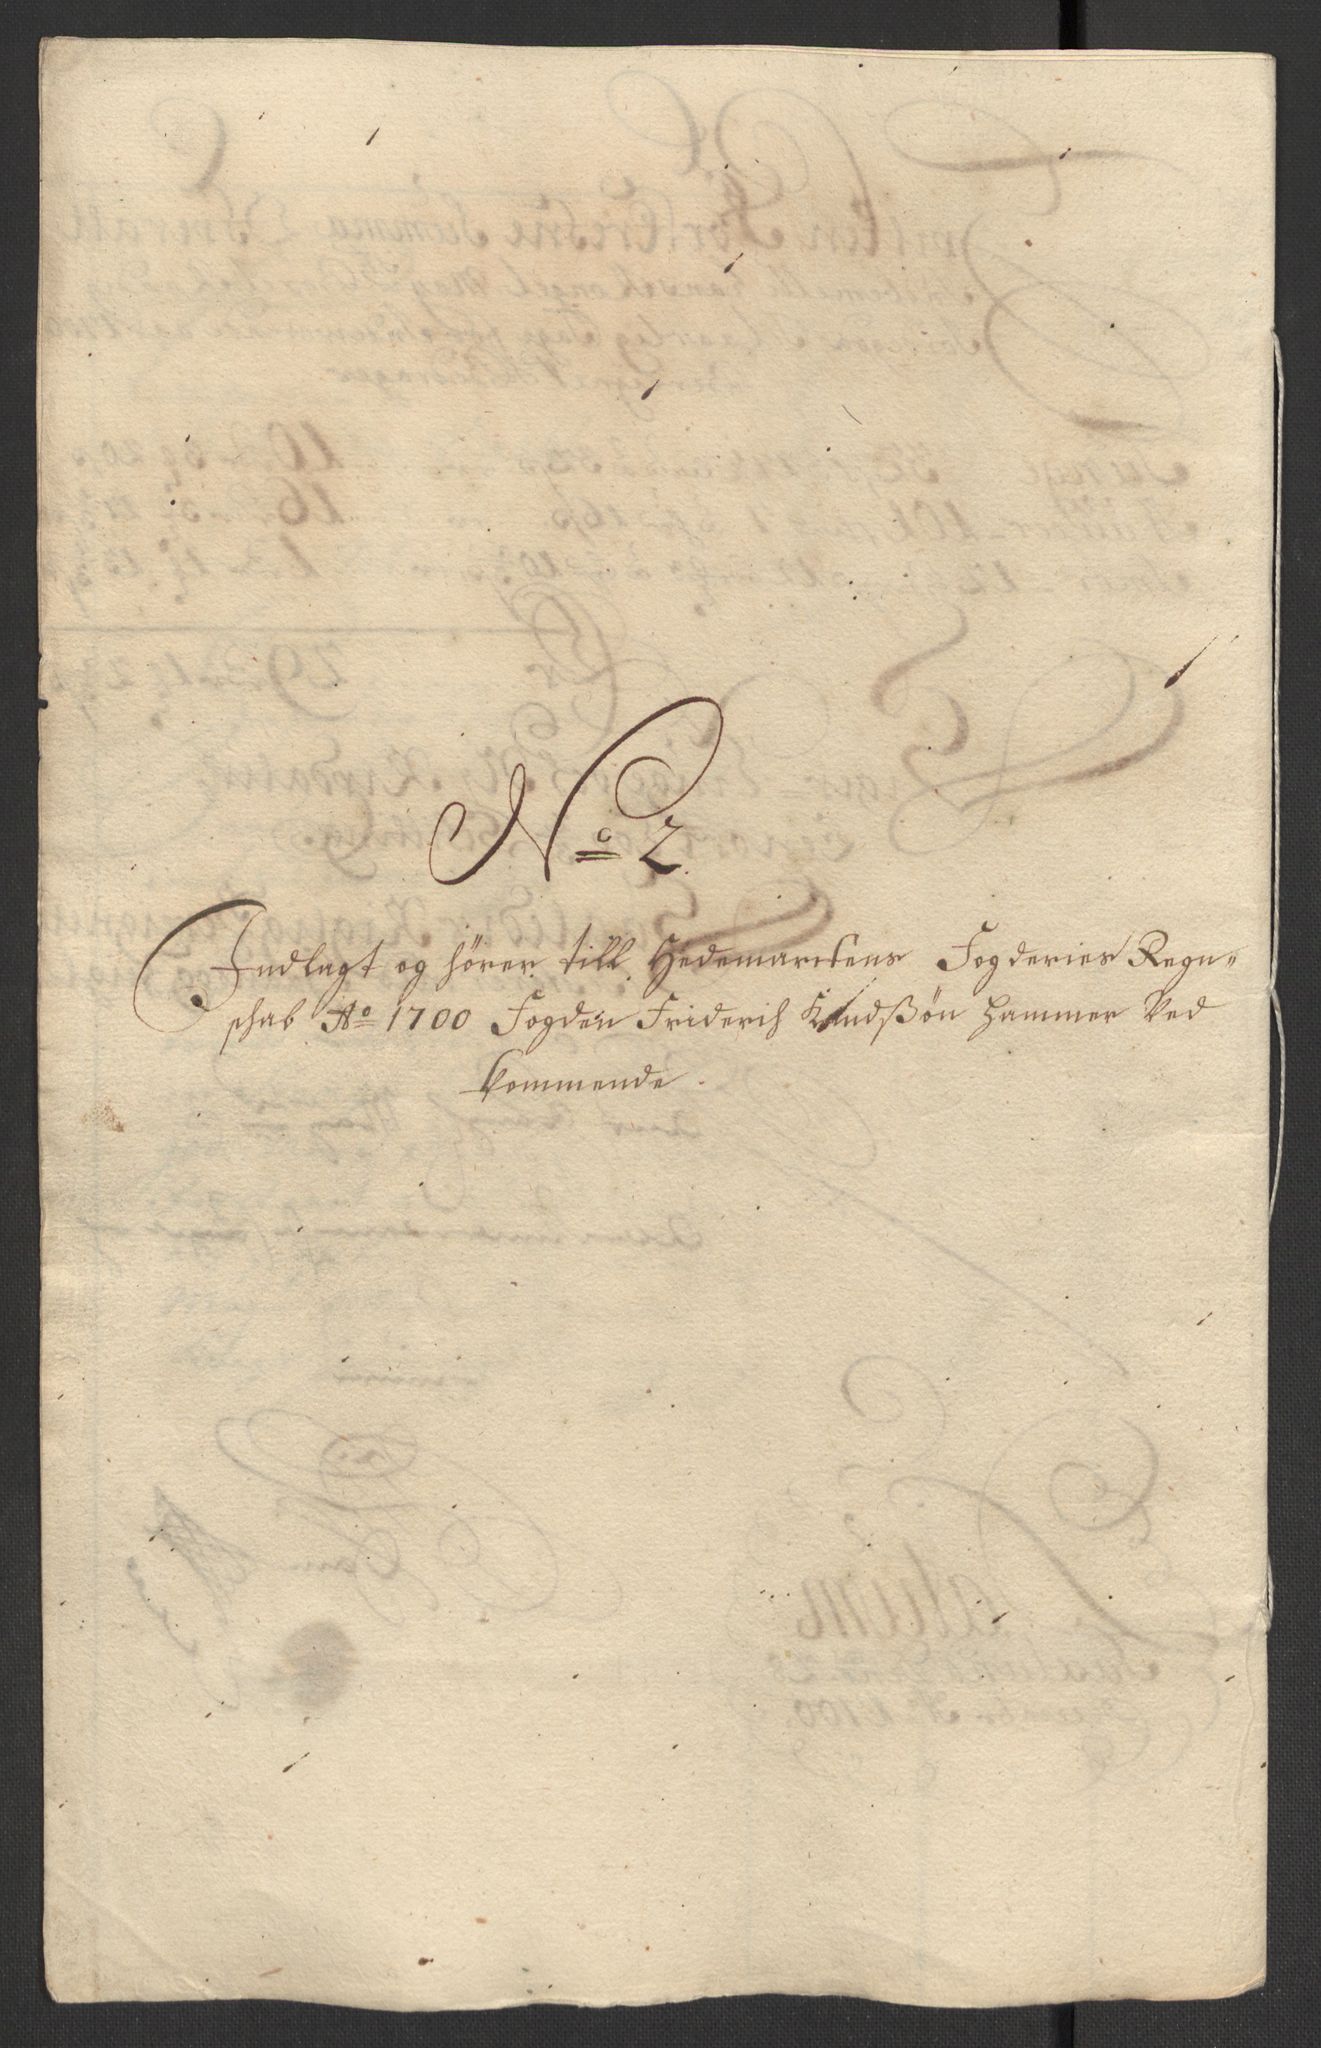 No 2.
Indlagt og hörer till Hedemarckens Fogderies Regn=
schab Ao 1700 Fogden Friderich Knudßön Hammer Ved
kommende.